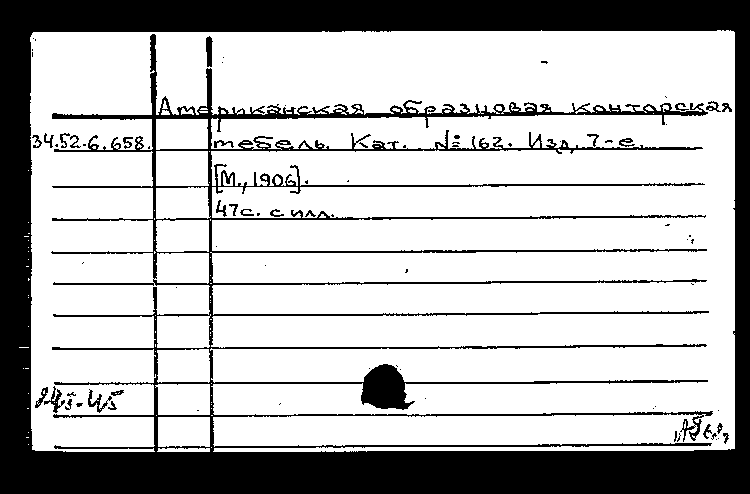 Американская образцовая конторская
34.52-6.658. мебель. Кат. № 162. Изд. 7-е.
[М., 1906].
47с. с илл.